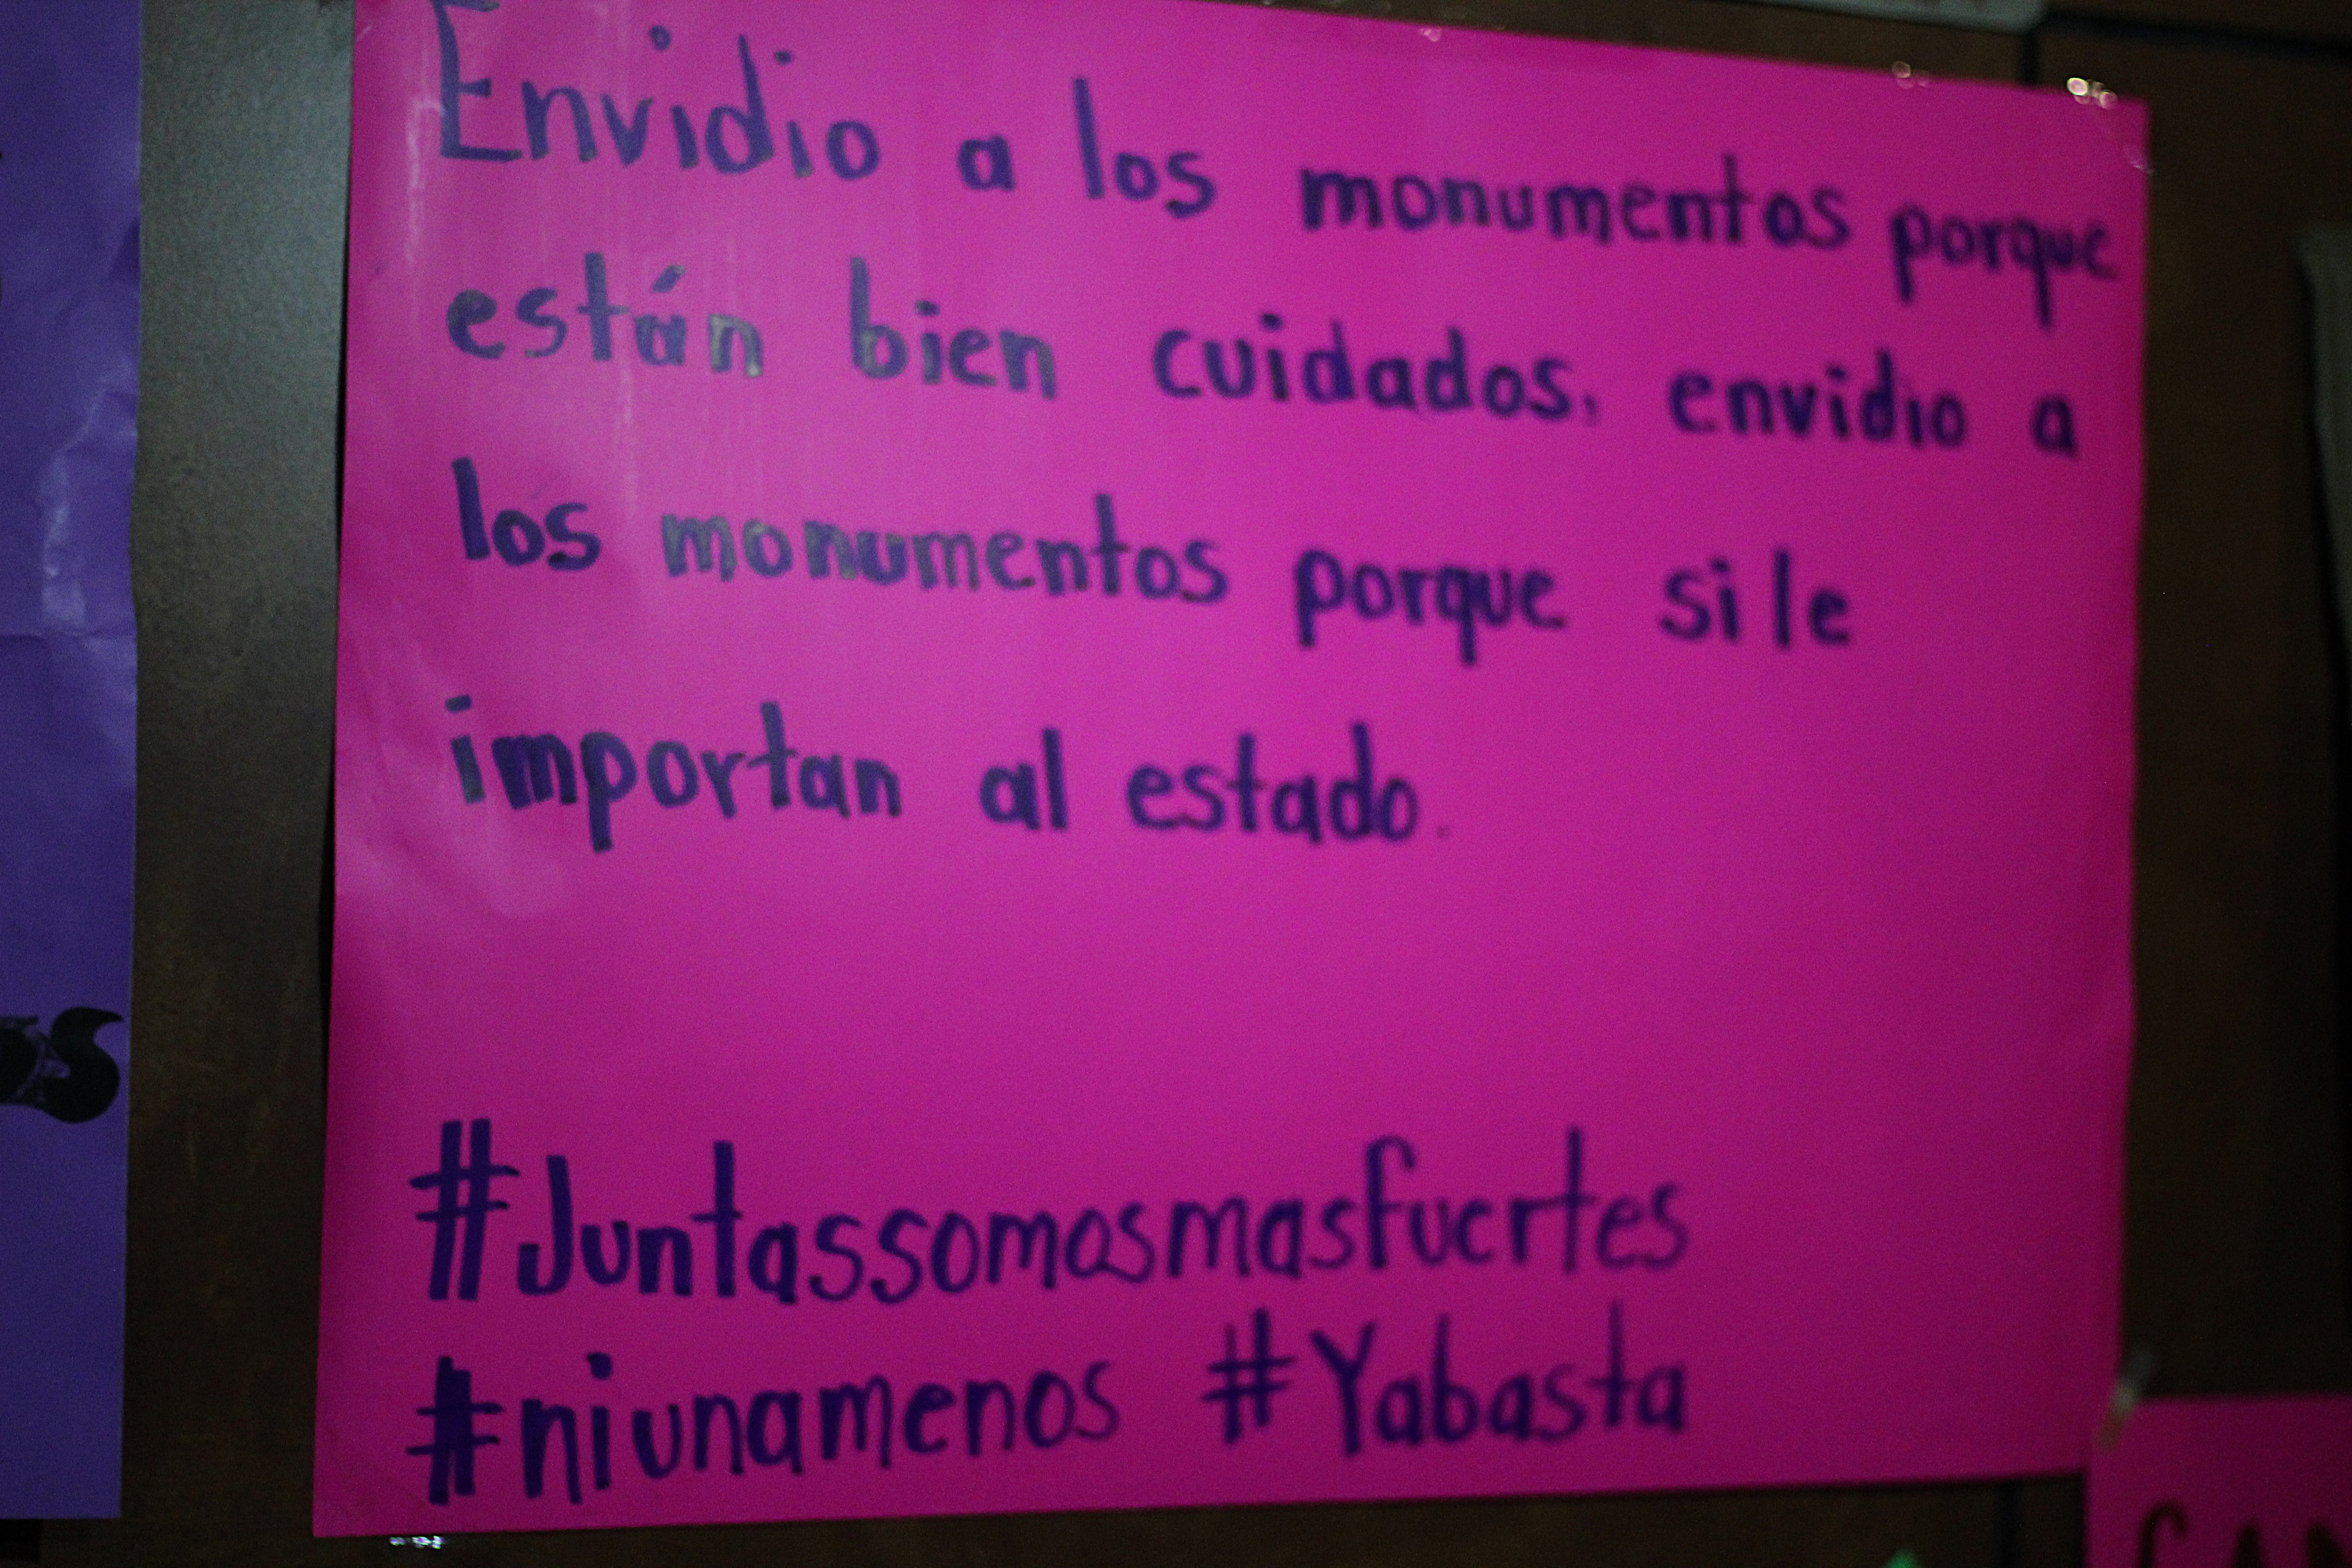 Envidio a los monumentos porque
están bien cuidados, envidio a
los monumentos porque si le
importan al estado.
#Juntassomosmasfuertes
#niunamenos #Yabasta